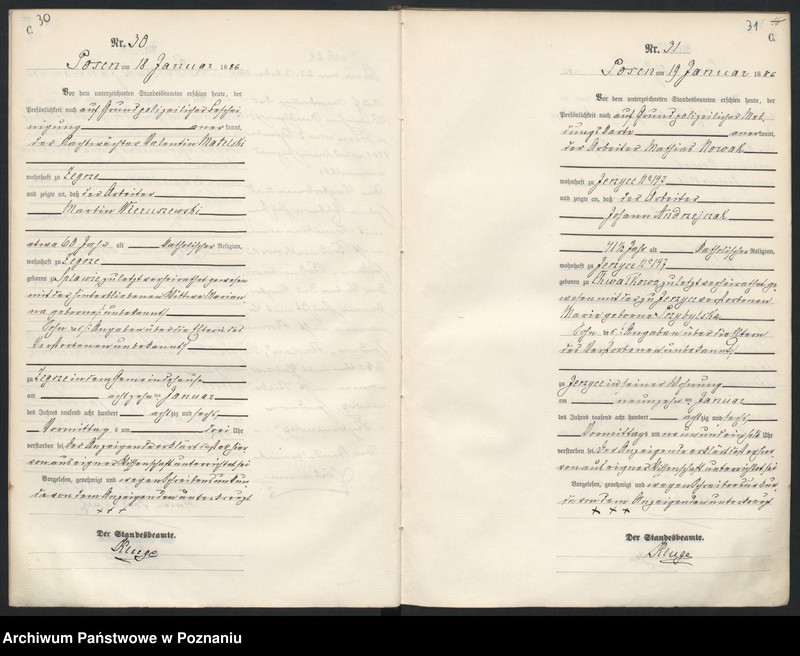 30
C.
Nr. 30
Posen am 18 Januar 1886
Vor dem unterzeichneten Standesbeamten erschien heute, der
Persönlichkeit nach auf Grund polizeilicher Beschei-
nigung anerkannt,
der Nachtwächter Valentin Matelski
wohnhaft zu Zegrze
und zeigte an, daß der Arbeiter
Martin Wieruszewski
etwa 60 Jahr alt katholischer Religion,
wohnhaft zu Zegrze
geboren zu Splawie, zuletzt verheirathet gewesen
mit der hinterbliebenen Wittwe Marian-
na geborne (unbekannt)
Sohn der (: Angaben über die Eltern des
Verstorbenen unbekannt)
zu Zegrze in dem Gemeindehause
am achtzehnten Januar
des Jahres tausend acht hundert achtzig und sechs,
Vormittags um drei Uhr
verstorben sei, der Anzeigende erklärt daß er hier-
von aus eigner Wissenschaft unterrichtet sei
Vorgelesen, genehmigt und wegen Schreibensunkun-
de von dem Anzeigenden unterkreuzt
+ + +
Der Standesbeamte.
Kluge
31
C.
Nr. 31
Posen am 19 Januar 1886
Vor dem unterzeichneten Standesbeamten erschien heute, der
Persönlichkeit nach auf Grund polizeilicher Mel-
dungskarte anerkannt,
der Arbeiter Mathias Nowak
wohnhaft zu Jerzyce No 147
und zeigte an, daß der Arbeiter
Johann Andrzejczak
71 1/2 Jahr alt katholischer Religion,
wohnhaft zu Jerzyce No 147
geboren zu zuletzt verheirathet ge-
wesen mit der zu Jerzyce verstorbenen
Marie geborne Przybylska
Sohn der (: Angaben über die Eltern
des Verstorbenen unbekannt:)
zu Jerzyce in seiner Wohnung
am neunzehnten Januar
des Jahres tausend acht hundert achtzig und sechs,
Vormittags um neun und einhalb Uhr
verstorben sei, der Anzeigende erklärt daß er hier-
von aus eigner Wissenschaft unterrichtet sei
Vorgelesen, genehmigt und wegen Schreibensunkun-
de von dem Anzeigenden unterkreuzt
+ + +
Der Standesbeamte.
Kluge
Archiwum Państwowe w Poznaniu